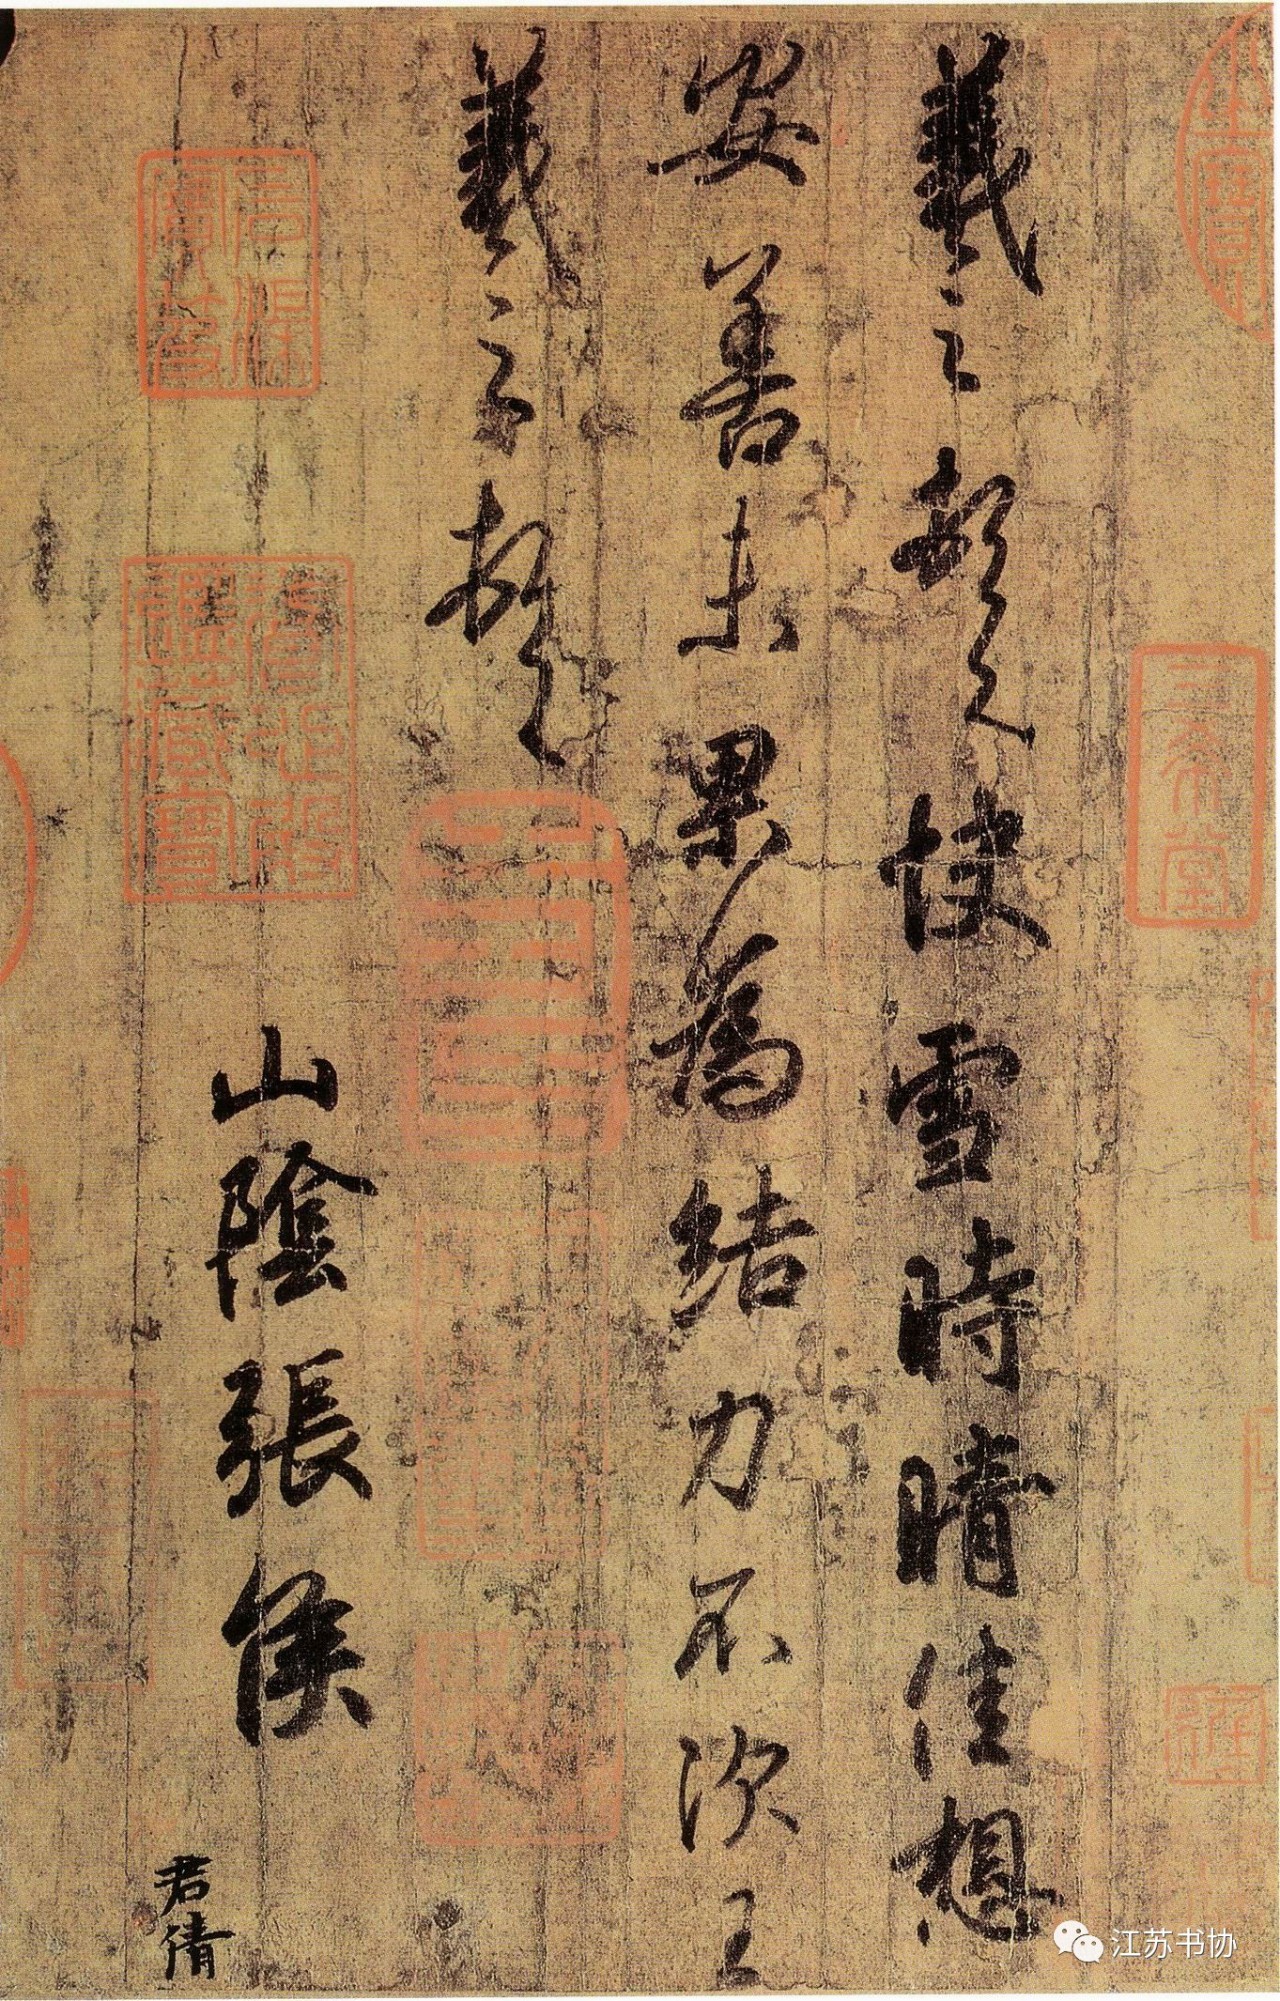 羲之頓首快雪時晴佳想
安善未果為結力不次王
羲之頓首
山陰張侯
君倩
三希堂
江苏书协